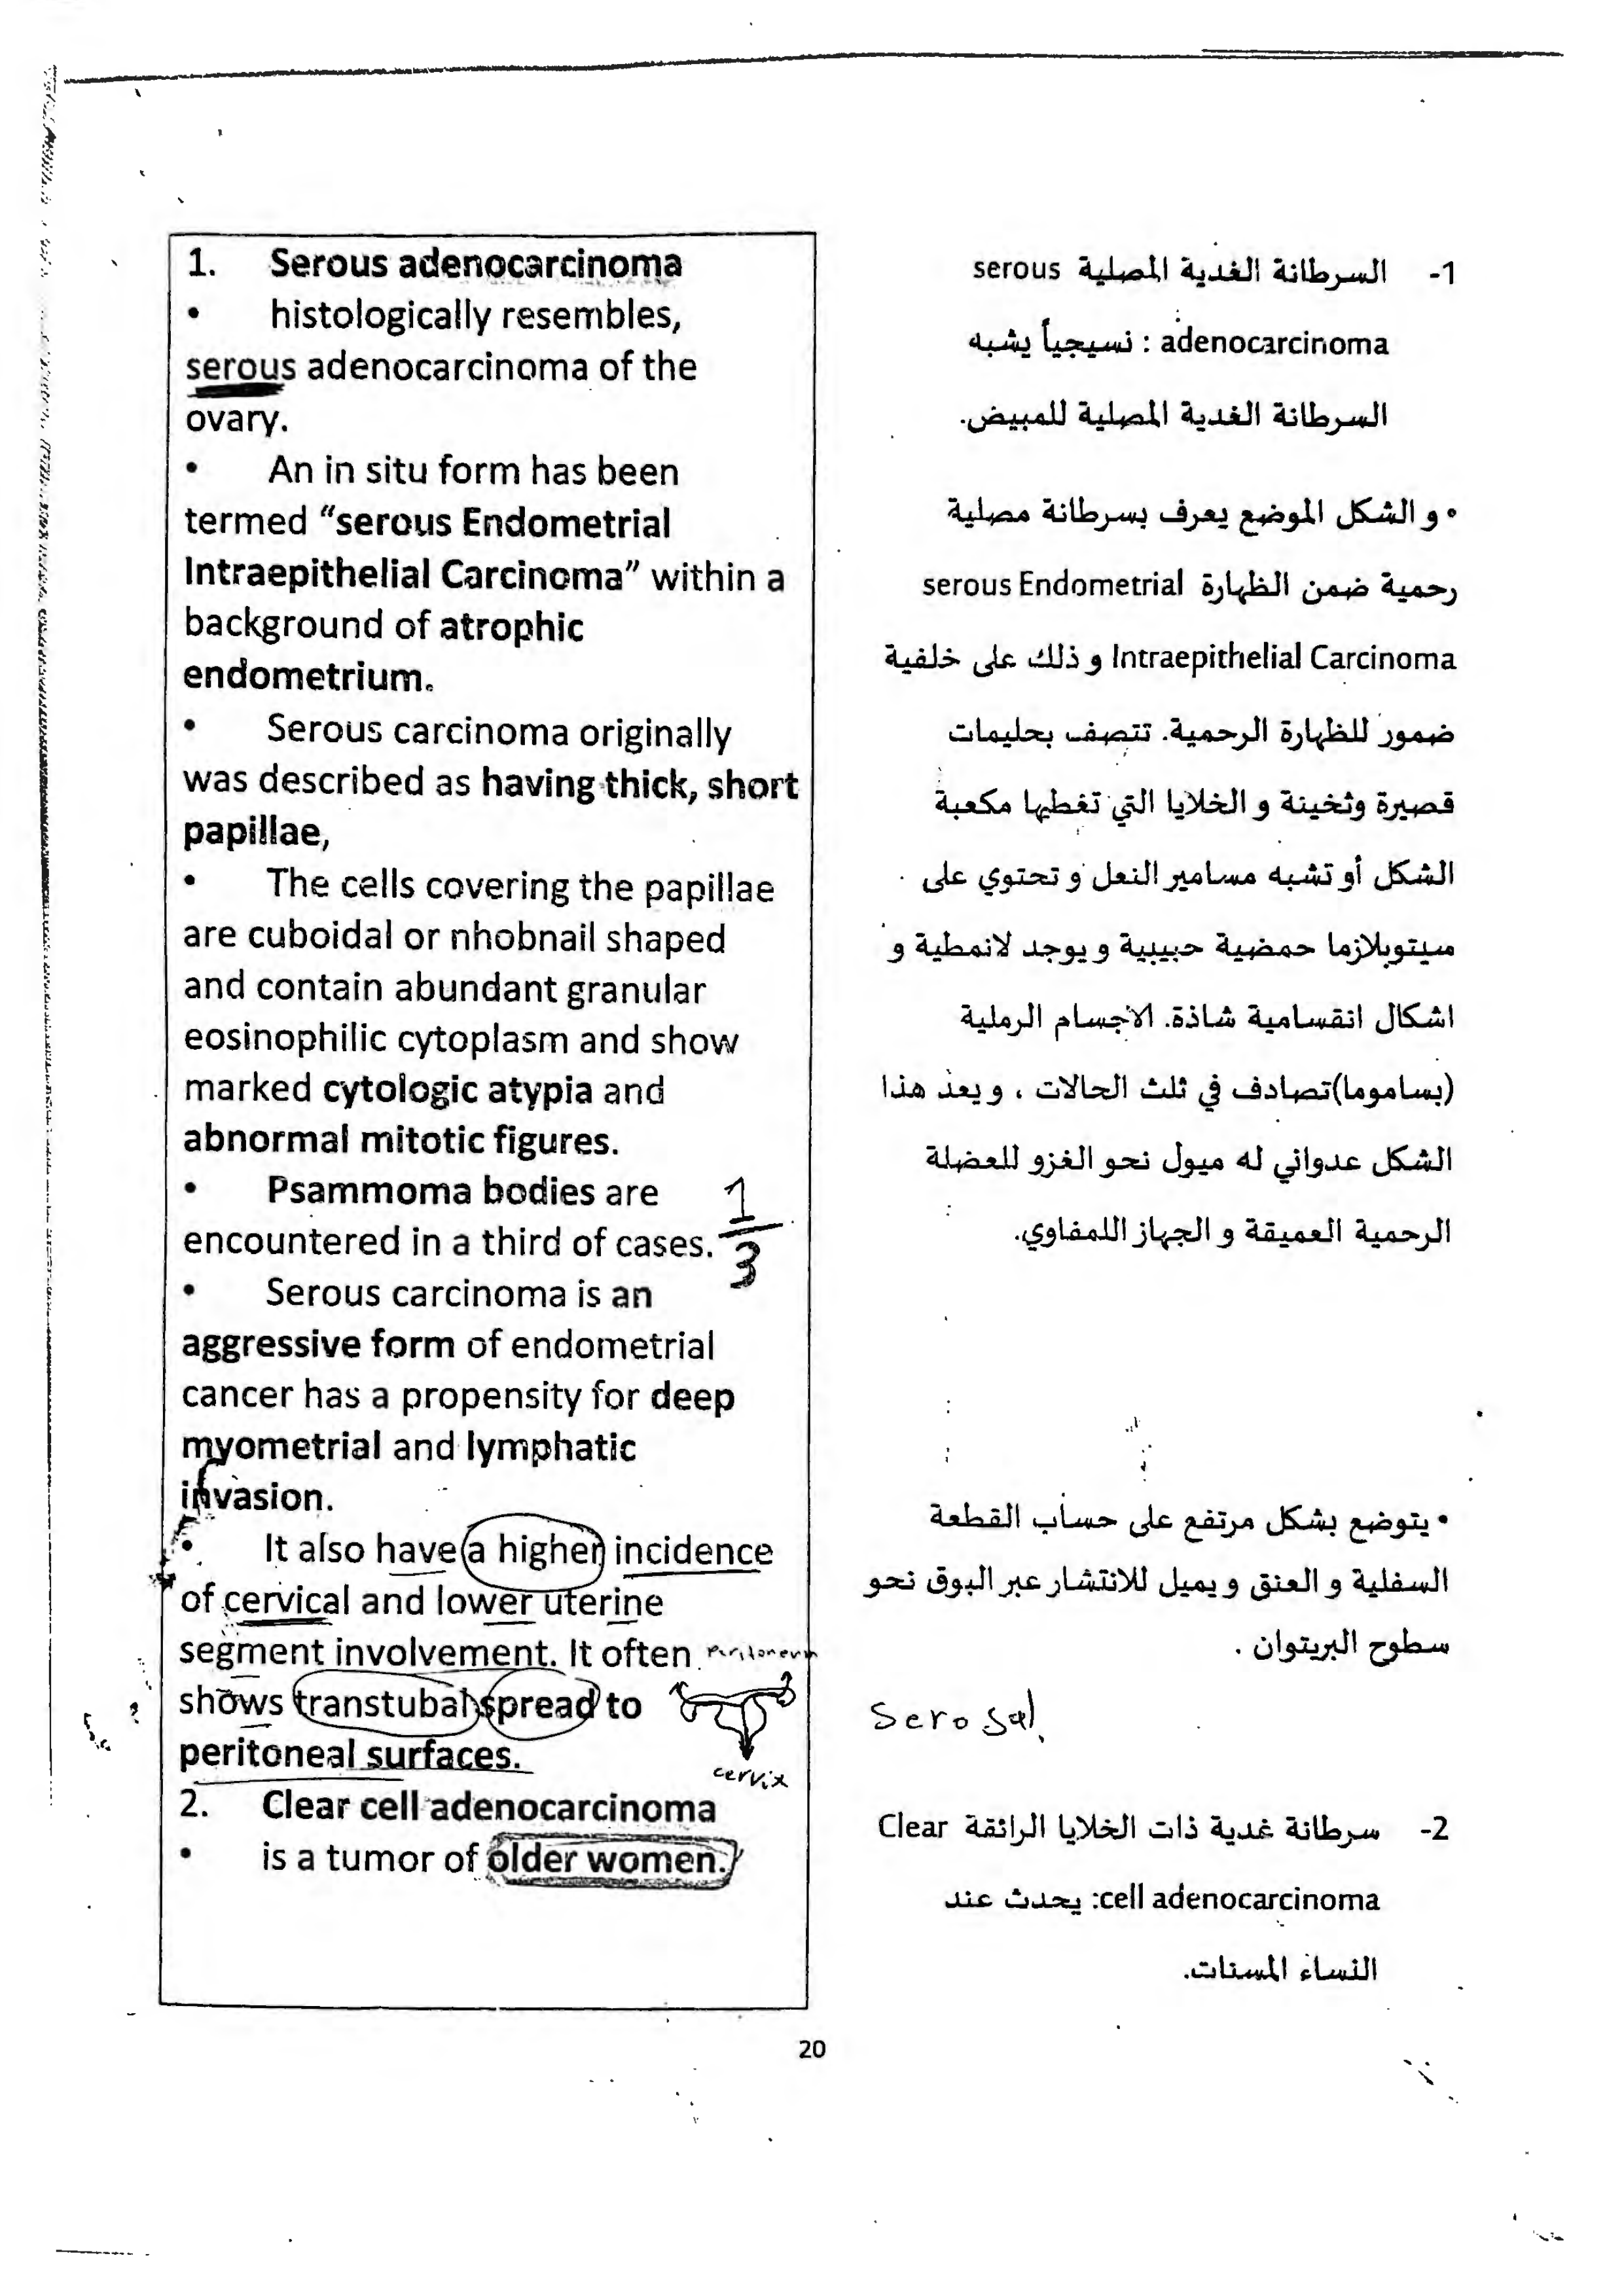 1. Serous adenocarcinoma
• histologically resembles,
serous adenocarcinoma of the
ovary.
• An in situ form has been
termed “serous Endometrial
Intraepithelial Carcinoma” within a
background of atrophic
endometrium.
• Serous carcinoma originally
was described as having thick, short
papillae,
• The cells covering the papillae
are cuboidal or nhobnail shaped
and contain abundant granular
eosinophilic cytoplasm and show
marked cytologic atypia and
abnormal mitotic figures.
• Psammoma bodies are
encountered in a third of cases.
1
3
• Serous carcinoma is an
aggressive form of endometrial
cancer has a propensity for deep
myometrial and lymphatic
invasion.
• It also have a higher incidence
of cervical and lower uterine
segment involvement. It often
peritoneum
shows transtubal spread to
peritoneal surfaces.
cervix
2. Clear cell adenocarcinoma
• is a tumor of older women.
1- السرطانة الغدية المصلية serous
adenocarcinoma : نسيجياً يشبه
السرطانة الغدية المصلية للمبيض.
• و الشكل الموضع يعرف بسرطانة مصلية
رحمية ضمن الظهارة serous Endometrial
Intraepithelial Carcinoma و ذلك على خلفية
ضمور للظهارة الرحمية. تتصف بحليمات
قصيرة وثخينة و الخلايا التي تغطيها مكعبة
الشكل أو تشبه مسامير النعل و تحتوي على
سيتوبلازما حمضية حبيبية و يوجد لانمطية و
اشكال انقسامية شاذة. الاجسام الرملية
(بساموما)تصادف في ثلث الحالات ، و يعد هذا
الشكل عدواني له ميول نحو الغزو للعضلة
الرحمية العميقة و الجهاز اللمفاوي.
• يتوضع بشكل مرتفع على حساب القطعة
السفلية و العنق و يميل للانتشار عبر البوق نحو
سطوح البريتوان .
Serosal
2- سرطانة غدية ذات الخلايا الرائقة Clear
cell adenocarcinoma: يحدث عند
النساء المسنات.
20